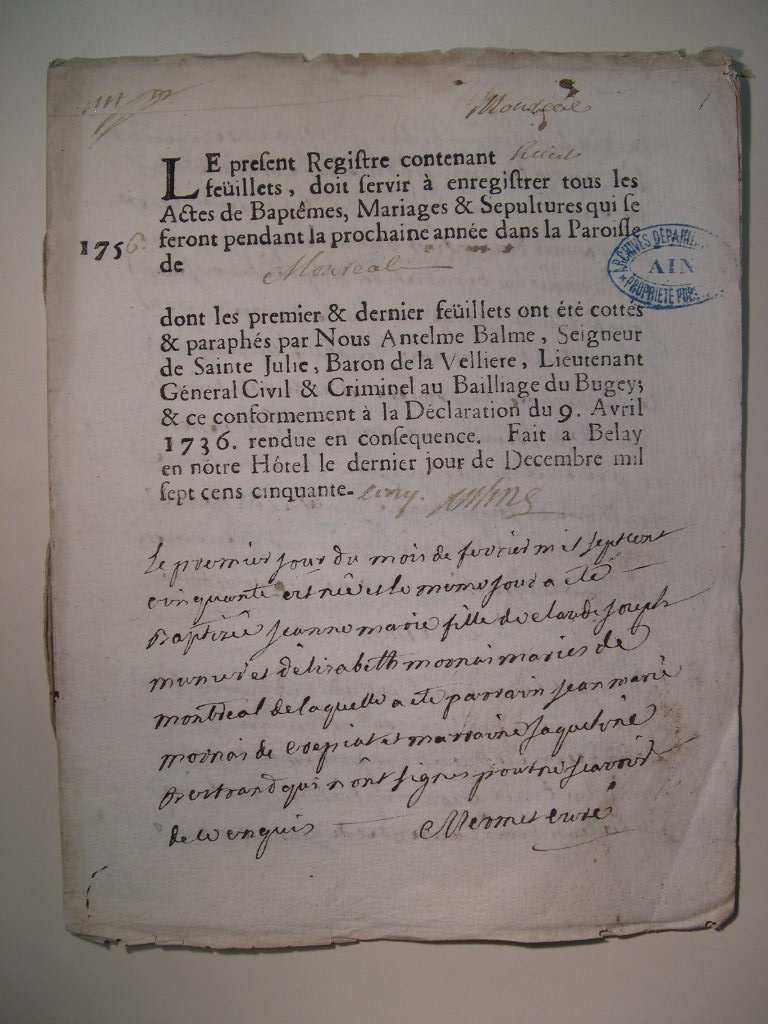 Montreal
1
LE preſent Regiſtre contenant
feüillets, doit ſervir à enregiſtrer tous les
Actes de Baptêmes, Mariages & Sepultures qui ſe
1756. feront pendant la prochaine année dans la Paroiſſe
de Montreal
ARCHIVES DÉPARTE
AIN
PROPRIÉTÉ PUB
dont les premier & dernier feüillets ont été cottés
& paraphés par Nous Antelme Balme, Seigneur
de Sainte Julie, Baron de la Velliere, Lieutenant
Géneral Civil & Criminel au Bailliage du Bugey;
& ce conformement à la Déclaration du 9. Avril
1736. rendue en conſequence. Fait a Belay
en nôtre Hôtel le dernier jour de Decembre mil
ſept cens cinquante- cinq.
le premier jour du mois de fevrier mil sept cent
cinquante est née et le meme jour a eté
Baptizée jeanne marie fille de claude joseph
et d'élizabeth moinai mariés de
montreal de laquelle a eté parrain jean marie
moinai de et marraine jaqueline
Bertrand qui n'ont signés pour ne scavoir
de ce enquis Mermet curé